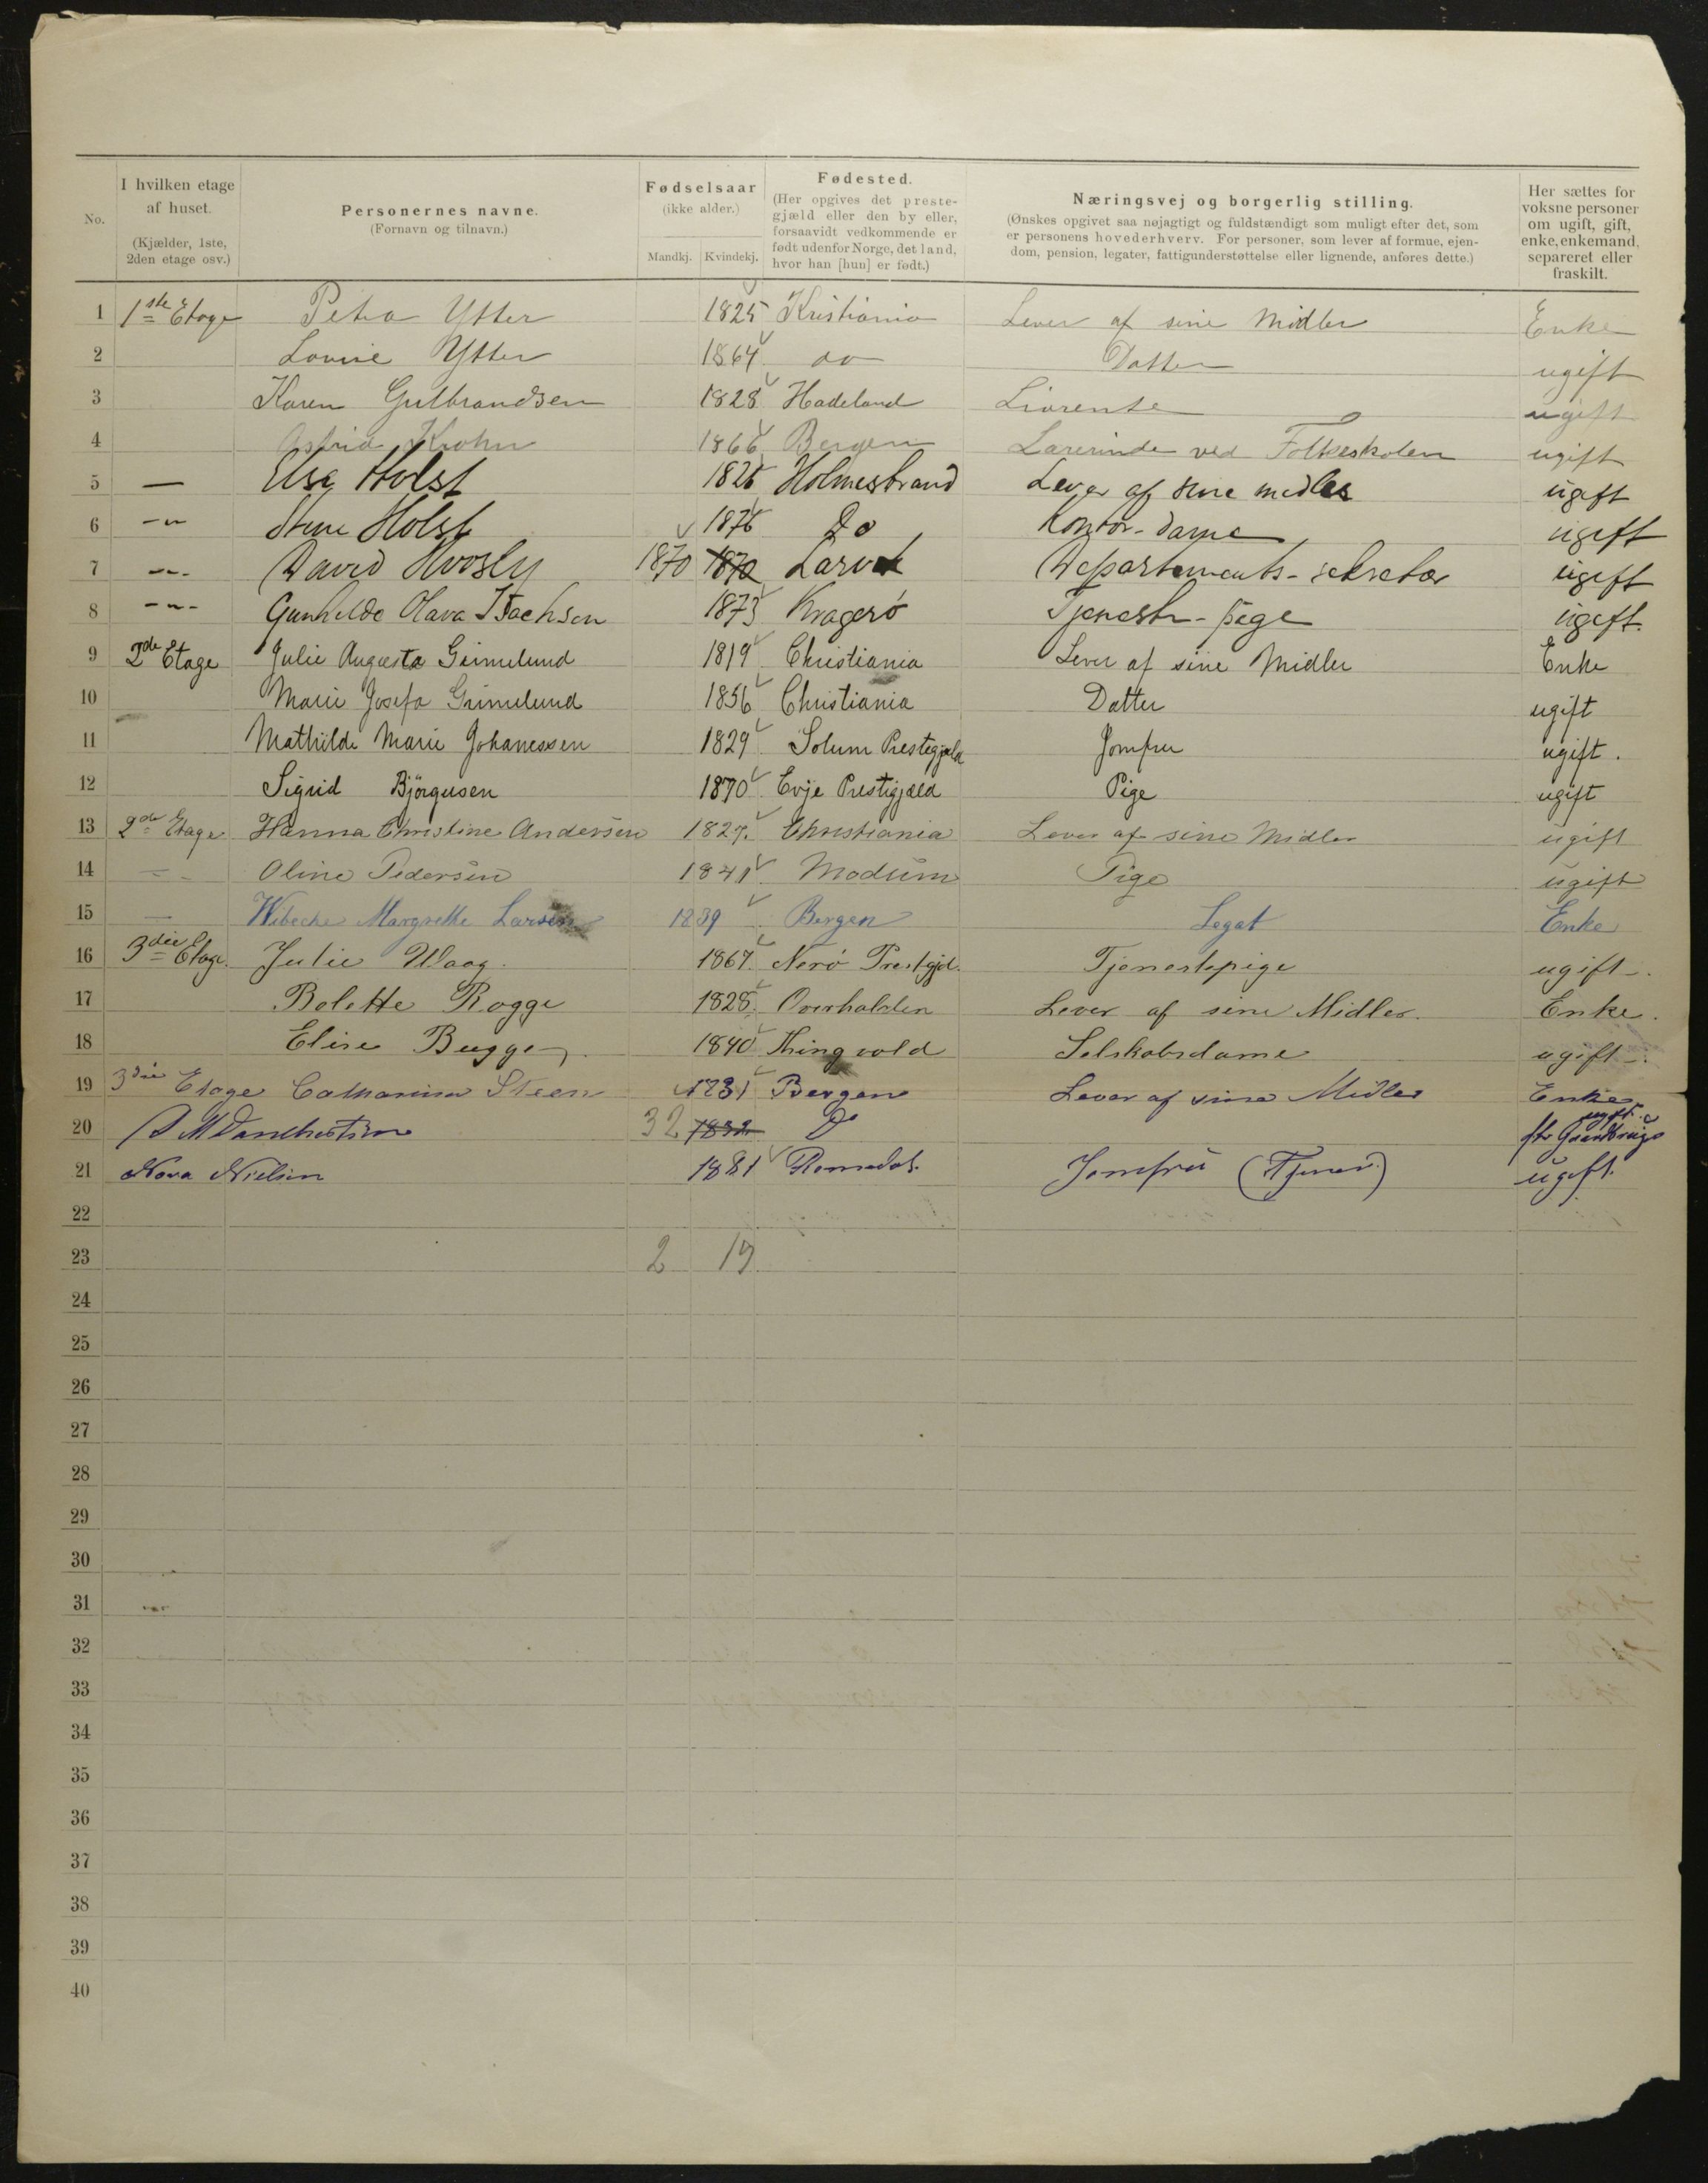 No.
I hvilken etage af huset. (Kjælder, 1ste, 2den etage osv.)
Personernes navne. (Fornavn og tilnavn.)
Fødselsaar (ikke alder.) Mandkj. Kvindekj.
Fødested. (Her opgives det prestegjæld eller den by eller, forsaavidt vedkommende er født udenfor Norge, det land, hvor han [hun] er født.)
Næringsvej og borgerlig stilling. (Ønskes opgivet saa nøjagtigt og fuldstændigt som muligt efter det, som er personens hovederhverv. For personer, som lever af formue, ejendom, pension, legater, fattigunderstøttelse eller lignende, anføres dette.)
Her sættes for voksne personer om ugift, gift, enke, enkemand, separeret eller fraskilt.
1 1ste Etage Petra Ytter 1825 Kristiania Lever af sine Midler Enke
2 Lovise Ytter 1864 do Datter ugift
3 Karen Gulbrandsen 1828 Hadeland Livrente ugift
4 Astrid Krohn 1866 Bergen Lærerinde ved Folkeskolen ugift
5 — Elise Holst 1826 Holmestrand Lever af sine midler ugift
6 –"– Holst 1876 Do Kontor-dame ugift
7 –"– David 1870 1870 Larvik Departements-sekretær ugift
8 –"– Gunhilde Olava Isachsen 1873 Kragerø Tjeneste-pige ugift.
9 2de Etage Julie Augusta Grimelund 1819 Christiania Lever af sine Midler Enke
10 Marie Josefa Grimelund 1856 Christiania Datter ugift
11 Mathilde Marie Johanessen 1829 Solum Prestegjæld Jomfru ugift.
12 Sigrid Bjørgusen 1870 Evje Prestigjæld Pige ugift
13 2de Etage Hanna Christine Andersen 1827. Christiania Lever af sine Midler ugift
14 – – Oline Pedersen 1841 Modum Pige ugift
15 — Wibecke Margrethe Larsen 1839 Bergen Legat Enke
16 3die Etage. Julie Waag. 1867. Nerø Prestgjd. Tjenestepige ugift-.
17 Bolette Rogge 1828. Overhalden Lever af sine Midler. Enke.
18 Elise Bugge. 1840 Thingvold Selskabsdame ugift-.
19 3die Etage Catharina Steen 1831 Bergen Lever af sine Midler Enke
20 32 1832 Do ugift.
21 Nora Nielsen 1881 Romedal. Jomfru ugift.
22
23 2 19
24
25
26
27
28
29
30
31
32
33
34
35
36
37
38
39
40